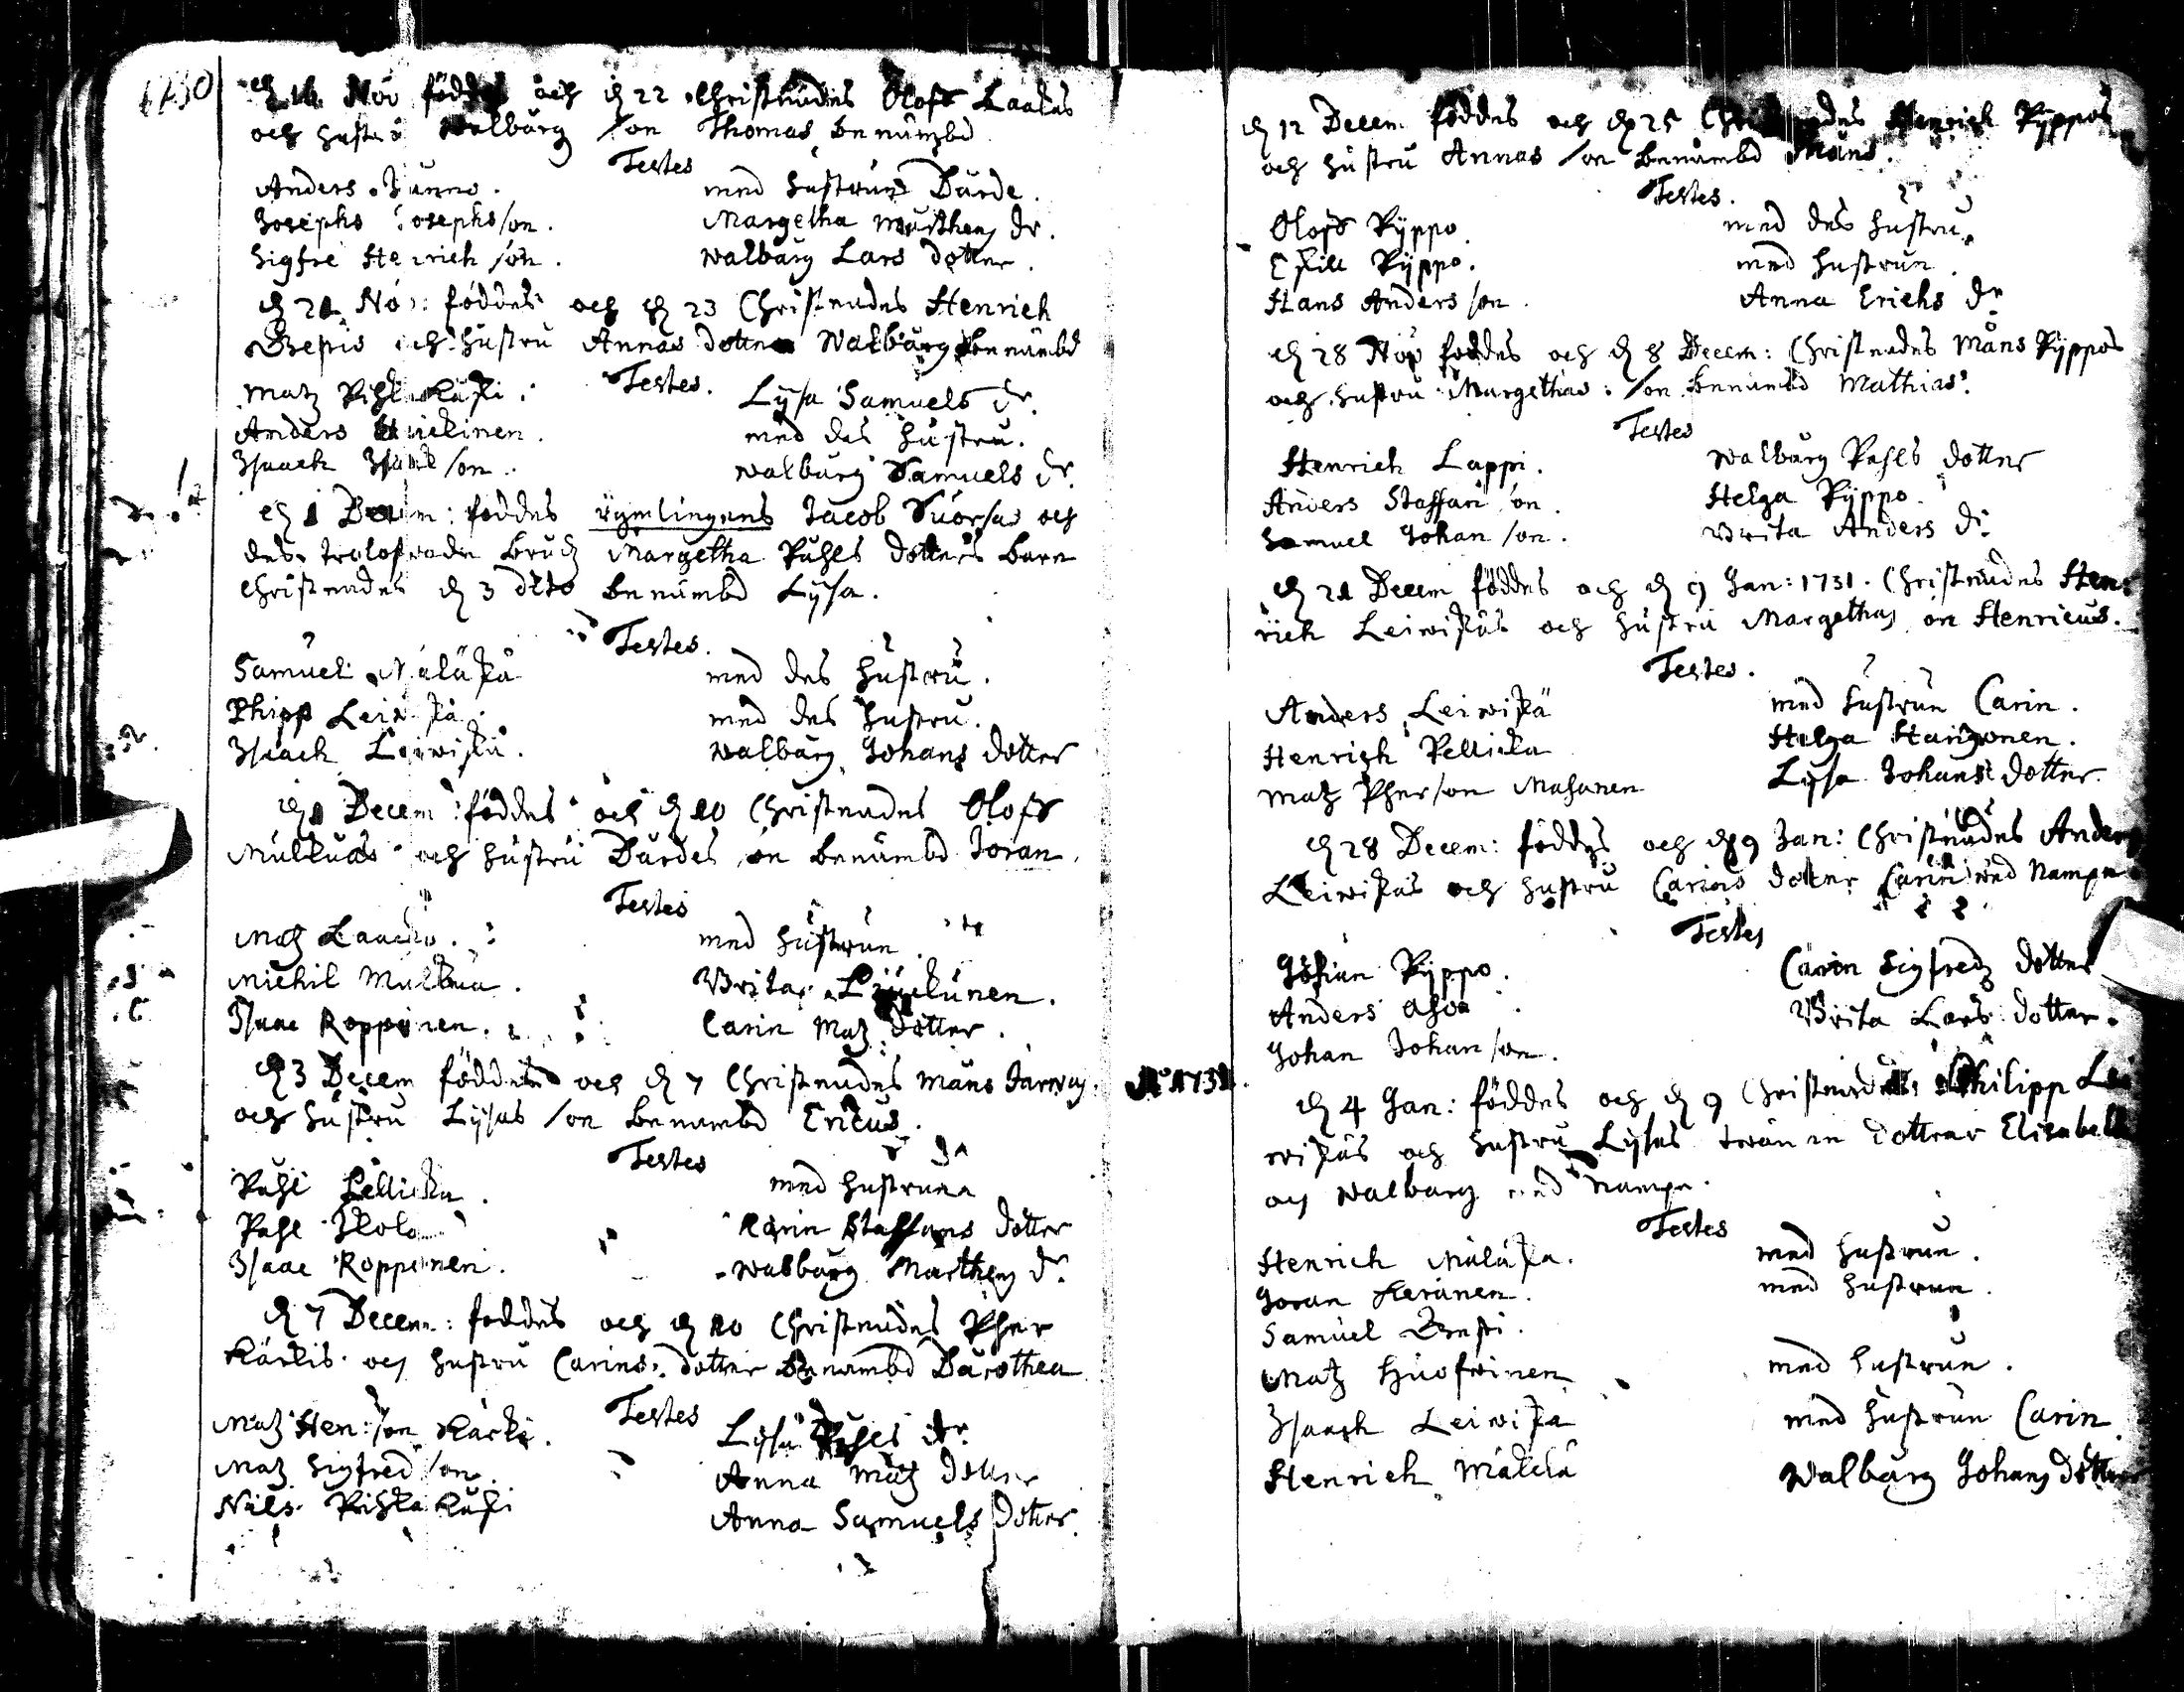 1730
d 16 Nov föddes och d 22 Christnades Oloff Laakas
och hustru Walburg son Thomas benämbd
Testes
Anders med hustrun Dårde.
Josephs Josephsson. Margetha Marthens dr.
Sigfre Henrichson. Walburg Lars dotter.
d 21 Nov: föddes och d 23 Christnades Henrich
Repis och hustru Annas dotter Walburg benämbd
Testes.
Matz Pihlakuski. Lysa Samuels dr.
Anders med des hustru.
Isaach Isacksson. Walburg Samuels dr.
d 1 Decem: foddes rymlingens Jacob Suorsas och
des trolofwade brudz Margetha Påhls dotters barn
Christnades d 3 dito benämbd Lysa.
Testes.
Samuel Määttä med des hustru.
Philipp Leiwiskä. med des hustru.
Isaach Leiwiskä. Walburg Johans dotter
d 1 Decem: föddes och d 10 Christnades Oloff
Mulkuas och hustru Dårdes son benämbd Joran.
Testes
Matz med hustrun
Michil Mulkua. Brita Liuckunen.
Isaac Roppoinen. Carin Matz dotter.
d 3 Decem föddes och d 7 Christnades Måns Jarwas.
och hustru Lysas son benämbd Ericus.
Testes
Påhl Pellicka. med hustrun
Påhl Karin Staffans dotter
Isaac Roppoinen. Walburg Marthens dr.
d 7 Decem: foddes och d 10 Christnades Pher
Kärkis och hustru Carins dotter benämbd Dårothea
Testes
Matz Hen:son Kärki. Lysa Påhls dr.
Matz Sigfredson. Anna Matz dotter
Nils Pihlakuski Anna Samuels dotter.
d 12 Decem föddes och d 25 Christnades Henrich Ryppos
och hustru Annas son benämbd Måns.
Testes.
Oloff Ryppo. med des hustru.
Eskill Ryppo. med hustrun.
Hans Andersson. Anna Erichs dr
d 28 Nov foddes och d 8 Decem: Christnades Måns Ryppos
och hustru Margethas: son benämbd Mathias.
Testes
Henrich Lappi. Walburg Påhls dotter
Anders Staffanson. Helga Ryppo.
Samuel Johanson. Brita Anders dr
d 21 Decem föddes och d 9 Jan: 1731. Christnades Hen:
rich Leiwiskäs och hustru Margethas son Henricus.
Testes.
Anders Leiwiskä med hustrun Carin.
Henrich Pellicka Helga
Matz Pherson Mahanen Lysa Johans dotter.
d 28 Decem: föddes och d 9 Jan: Christnades Anders
Leiwiskäs och hustru Carins dotter Carin med Nampn
Testes
Johan Ryppo. Carin Sigfredz dotter
Anders Ahoa. Brita Lars dotter.
Johan Johanson.
Ao 1731.
d 4 Jan: föddes och d 9 Christnades Philipp Lei
wiskäs och hustru Lysas twänne dottrar Elisabeth
och Walburg med nampn.
Testes
Henrich Määttä. med hustrun.
Joran Keränen. med hustrun.
Samuel
Matz med hustrun.
Isaach Leiwiskä med hustrun Carin
Henrich Walburg Johans dotter